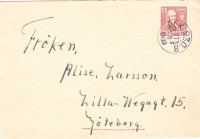 Fröken,
Alise, Larsson,
Lilla-Wegagt, 15,
Göteborg.